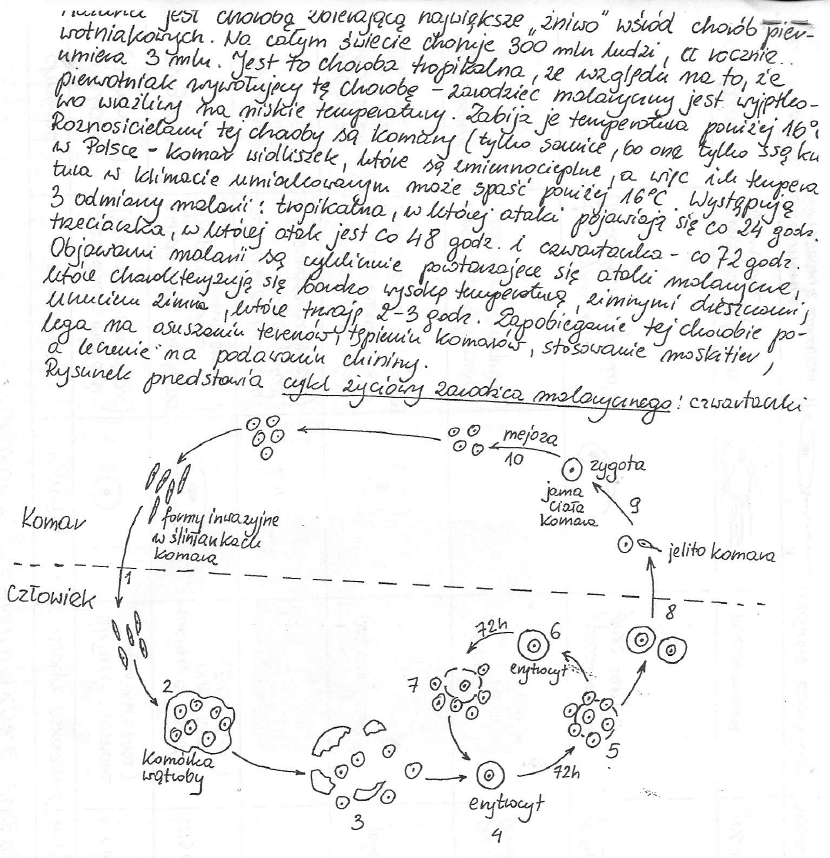 jest chorobą zbierającą największe „żniwo” wśród chorób pier-
wotniakowych. Na całym świecie choruje 300 mln ludzi, a rocznie
umiera 3 mln. Jest to choroba tropikalna, ze względu na to, że
pierwotniak wywołujący tę chorobę - zarodziec malaryczny jest wyjątko-
wo wrażliwy na niskie temperatury. Zabija je temperatura poniżej 16°
Roznosicielami tej choroby są komary (tylko samice, bo one tylko ssą krw
w Polsce - komar widliszek, które są zmiennocieplne, a więc ich tempera
tura w klimacie umiarkowanym może spaść poniżej 16°C. Występują
3 odmiany malarii: tropikalna, w której ataki pojawiają się co 24 godz.
trzeciaczka, w której atak jest co 48 godz. i czwartaczka - co 72 godz.
Objawami malarii są cyklicznie powtarzające się ataki malaryczne,
które charakteryzują się bardzo wysoką temperaturą, zimnymi dreszczami,
uczuciem zimna, które trwają 2-3 godz. Zapobieganie tej chorobie po-
lega na osuszaniu terenów, tępieniu komarów, stosowanie moskitier,
a leczenie na podawaniu chininy.
Rysunek przedstawia cykl życiowy zarodźca malarycznego: czwartaczki
mejoza
10
zygota
jama
ciała
komara
9
Komar
formy inwazyjne
w śliniankach
komara
jelito komara
1
Człowiek
8
72h
6
erytrocyt
7
2
5
komórka
wątroby
72h
erytrocyt
3
4